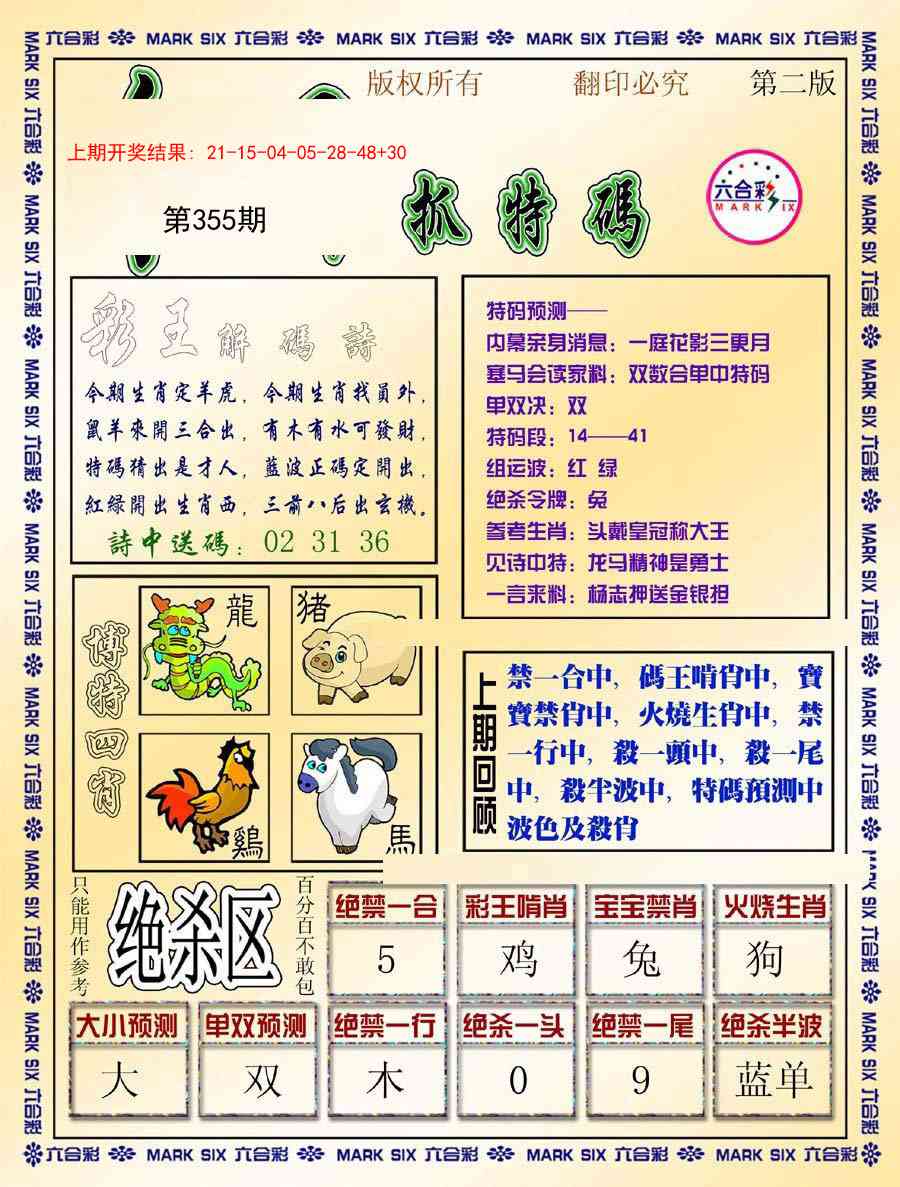 六合彩 MARK SIX 六合彩 MARK SIX 六合彩 MARK SIX 六合彩 MARK SIX 六合彩
版权所有 翻印必究 第二版
上期开奖结果: 21-15-04-05-28-48+30
第355期
抓特碼
六合彩
MARK SIX
彩王解碼詩
今期生肖定羊虎, 今期生肖找員外,
鼠羊來開三合出, 有木有水可發財,
特碼猜出是才人, 藍波正碼定開出,
紅綠開出生肖西, 三前八后出玄機。
詩中送碼: 02 31 36
特码预测——
内幕亲身消息: 一庭花影三更月
塞马会读家料: 双数合单中特码
单双决: 双
特码段: 14——41
组运波: 红 绿
绝杀令牌: 兔
参考生肖: 头戴皇冠称大王
见诗中特: 龙马精神是勇士
一言来料: 杨志押送金银担
博特四肖
龍
猪
鷄
馬
上期回顾
禁一合中, 碼王啃肖中, 寶
寶禁肖中, 火燒生肖中, 禁
一行中, 殺一頭中, 殺一尾
中, 殺半波中, 特碼預測中
波色及殺肖
只能用作参考
绝杀区
百分百不敢包
绝禁一合 彩王啃肖 宝宝禁肖 火烧生肖
5 鸡 兔 狗
大小预测 单双预测 绝禁一行 绝杀一头 绝禁一尾 绝杀半波
大 双 木 0 9 蓝单
六合彩 MARK SIX 六合彩 MARK SIX 六合彩 MARK SIX 六合彩 MARK SIX 六合彩